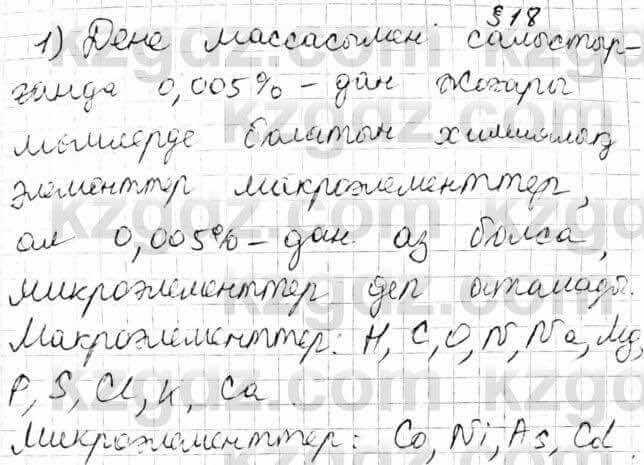 §18
1) Дене массасымен салыстыр-
ғанда 0,005% - дан жоғары
мөлшерде болатын химиялық
элементтер макроэлементтер,
ал 0,005% - дан аз болса,
микроэлементтер деп аталады.
Макроэлементтер: H, C, O, N, Na, Mg,
P, S, Cl, K, Ca.
Микроэлементтер: Co, Ni, As, Cd.